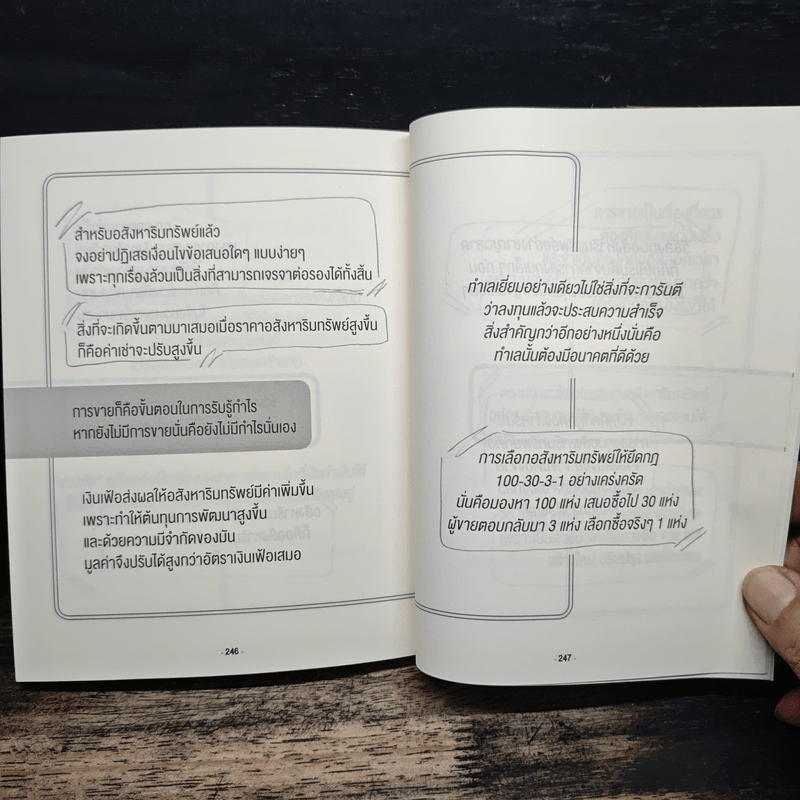 สำหรับอสังหาริมทรัพย์แล้ว
จงอย่าปฏิเสธเงื่อนไขข้อเสนอใดๆ แบบง่ายๆ
เพราะทุกเรื่องล้วนเป็นสิ่งที่สามารถเจรจาต่อรองได้ทั้งสิ้น
สิ่งที่จะเกิดขึ้นตามมาเสมอเมื่อราคาอสังหาริมทรัพย์สูงขึ้น
ก็คือค่าเช่าจะปรับสูงขึ้น
การขายก็คือขั้นตอนในการรับรู้กำไร
หากยังไม่มีการขายนั่นคือยังไม่มีกำไรนั่นเอง
เงินเฟ้อส่งผลให้อสังหาริมทรัพย์มีค่าเพิ่มขึ้น
เพราะทำให้ต้นทุนการพัฒนาสูงขึ้น
และด้วยความมีจำกัดของมัน
มูลค่าจึงปรับได้สูงกว่าอัตราเงินเฟ้อเสมอ
- 246 -
ทำเลเยี่ยมอย่างเดียวไม่ใช่สิ่งที่จะการันตี
ว่าลงทุนแล้วจะประสบความสำเร็จ
สิ่งสำคัญกว่าอีกอย่างหนึ่งนั่นคือ
ทำเลนั้นต้องมีอนาคตที่ดีด้วย
การเลือกอสังหาริมทรัพย์ให้ยึดกฎ
100-30-3-1 อย่างเคร่งครัด
นั่นคือมองหา 100 แห่ง เสนอซื้อไป 30 แห่ง
ผู้ขายตอบกลับมา 3 แห่ง เลือกซื้อจริงๆ 1 แห่ง
- 247 -